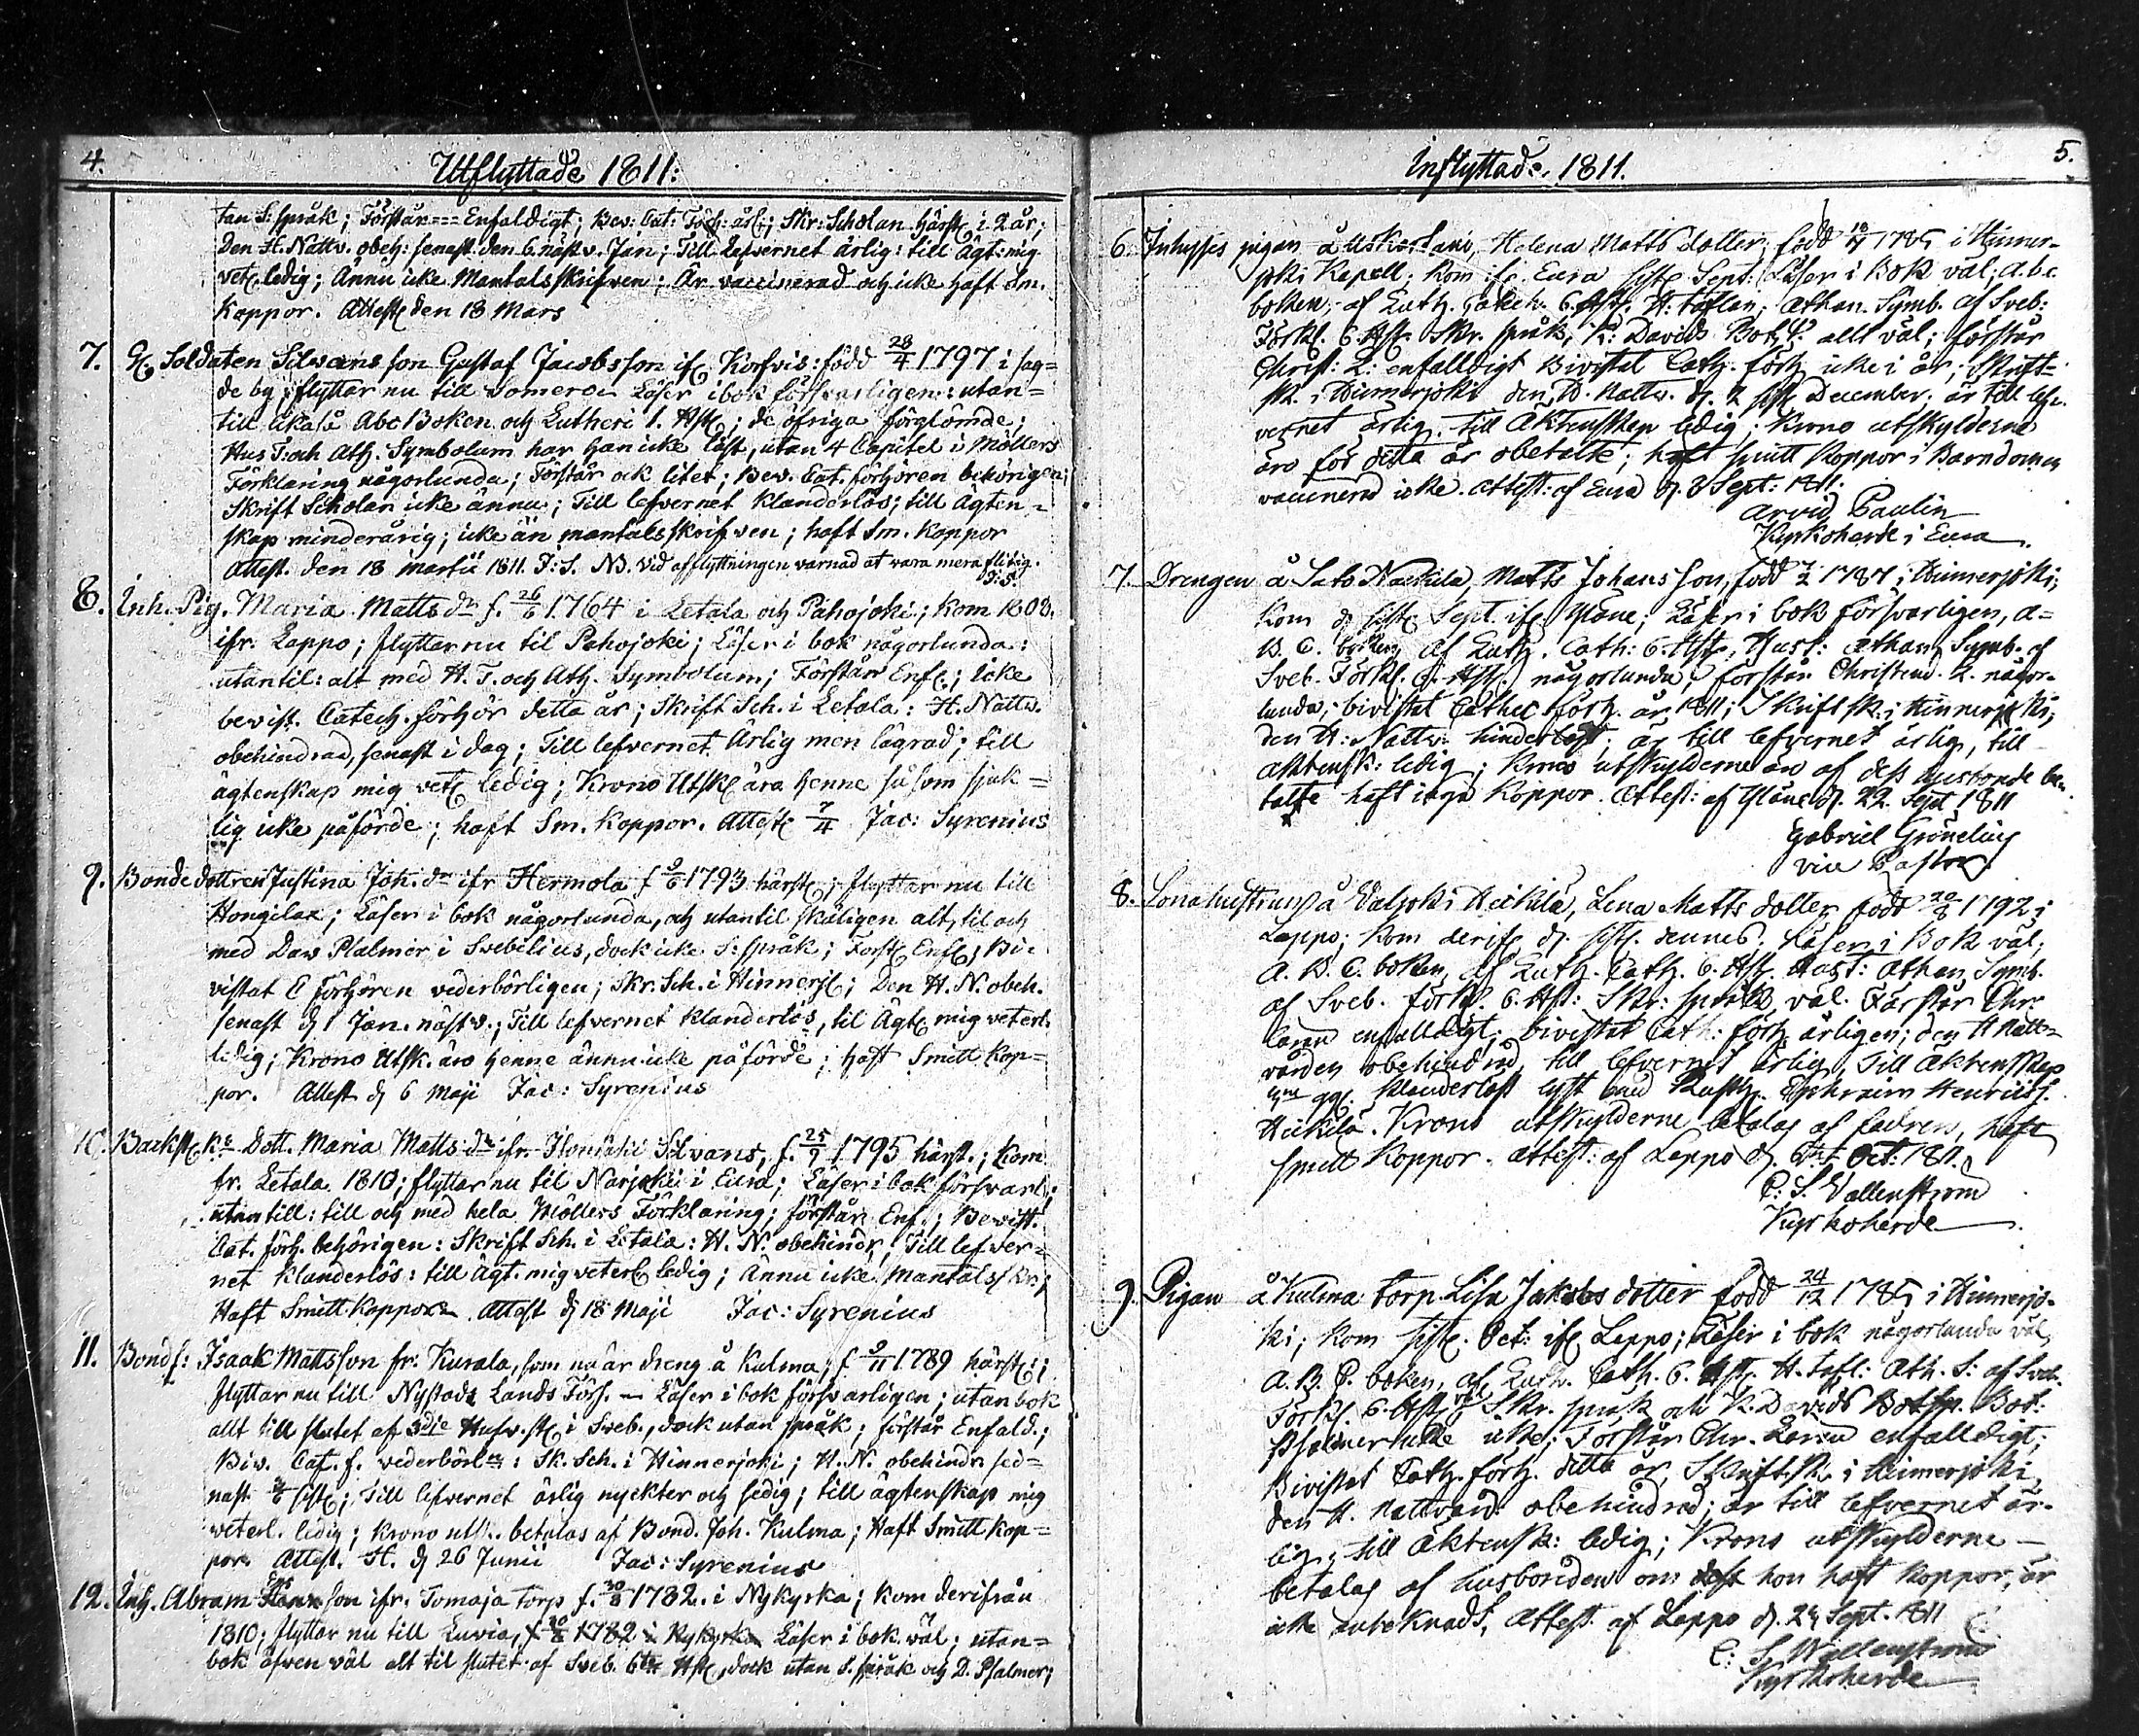 4.
Utflyttade 1811:
tan S: språk; Förstår=== Enfaldigt; Bev: Cat: Förh: årl:; Skr: Scholan härst: i 2 år;
Den H. Nattv. obeh: senast den 6. näst v. Jan; Till Lefvernet ärlig: till Ägt: mig
vet. ledig; Ännu icke Mantalsskrifven; Är vaccinerad och icke haft Sm.
Koppor. Attest den 18 Mars
7. Soldaten Silvans son Gustaf Jacobsson ifr. Korfvis: född 28/4 1797 i sag=
de by; flyttar nu till Somero. Läser i bok försvarligen: utan=
till likaså Abc Boken och Lutheri 1. Hst; de öfriga förglömde;
Hus T: och Ath. Symbolum har han icke läst, utan 4 Capitel i Möllers
Förklaring någorlunda; Förstår ock litet; Bev. Cat. förhören behörigen;
Skrift Scholan icke ännu; Till lefvernet klanderlös; till Ägten=
skap minderårig; icke än mantalsskrifven; haft Sm. Koppor
Attest. den 18 Martii 1811. J: S. NB. Vid afflyttningen varnad at vara mera flitig.
J: S.
8. Inh. Pig. Maria Matts dr f. 26/6 1764 i Letala och Pahojoki; Kom 1808
ifr. Lappo; flyttar nu til Pahojoki; Läser i bok någorlunda:
utantil: alt med H. T. och Ath. Symbolum; Förstår Enf.; icke
bevist. Catech. förhör detta år; Skrift Sch. i Letala: H. Nattv.
obehindrad, senast i dag; Till lefvernet Ärlig men lägrad; till
ägtenskap mig vet. ledig; Krono Utsk. äro henne såsom sjuk=
lig icke påförde; haft Sm. Koppor. Attest 7/4 Jac: Syrenius
9. Bonde dottren Justina Joh. dr ifr Hermola f 9/6 1793 härst.; flyttar nu till
Hongilax; Läser i bok någorlunda, och utantil skäligen alt, til och
med Davs Psalmer i Svebilius, dock icke S: språk; Först. Enf; Bi=
vistat C förhören vederbörligen; Skr. Sch. i Hinnersj; Den H. N. obeh.
senast d. 1 Jan. näst v.; Till lefvernet klanderlös, til Ägt. mig veterl.
ledig; Krono Utsk. äro henne ännu icke påförde; haft Smitt kop=
por. Attest d. 6 Maji Jac: Syrenius
10. Dott. Maria Matts dr ifr. Silvans, f. 25/7 1795 härst.; Kom
fr. Letala 1810; flyttar nu til Narjoki i Eura; Läser i bok försvarl;
utantill: till och med hela Möllers Förklaring; förstår Enf.; Bevist.
Cat. förh. behörigen: Skrift Sch. i Letala: H. N. obehindr; Till lefver=
net klanderlös: till Ägt. mig veterl. ledig; Ännu icke Mantalsskr;
Haft Smitt Koppor. Attest d. 18 Maji Jac: Syrenius
11. Bonds: Isaak Mattsson fr. Kurala, som nu är dreng å Kulma; f 9/11 1789 härst.;
flyttar nu till Nystads Lands Förs. — Läser i bok försvarligen; utan bok
allt till slutet af 3die Hufv. st. i Sveb., dock utan språk; förstår Enfald.;
Biv. Cat. f. vederbörl: Sk. Sch. i Hinnerjoki; H. N. obehindr. sed=
nast sist; Till lefvernet ärlig nyckter och sedig; till ägtenskap mig
veterl. ledig; krono utsk. betalas af Bond. Joh. Kulma; Haft Smitt kop=
por. Attest. H. d 26 Junii Jac: Syrenius
12. Inh. Abram son ifr. Tomaja torp f. 30/8 1782. i Nykyrka; kom derifrån
1810; flyttar nu till Luvia, f 30/8 1782 i Nykyrka Läser i bok väl; utan=
bok äfven väl alt til slutet af Sveb. 6te Hst, dock utan S. språk och D. Psalmer;
5.
Inflyttade, 1811.
6. Inhyses pigan å Uskartani, Helena Matts dotter, född 1785 i Hinner-
joki Kapell. kom fr. Eura sist. Sept: Läser i Bok väl; a.b.c.
boken, af Luth. Catech. 6. Hst. H: taflan, Athan. Symb. af Sveb:
Förkl. 6. Hst. Skr. språk, K: Davids Bot. P: allt väl; förstår
Christ: L: enfalldigt Bivistat Cath. förh. icke i år; skrift=
sk. i Hinnerjoki den H. nattv. d. 2 sist. December. är till lef-
vernet ärlig, till Äktenskap ledig; krono utskylderne
äro för detta år obetalte; haft smitt koppor i Barndomen
vaccinerad icke. attest: af Eura d. 3 Sept: 1811.
Arvid Paulin
Kyrkoherde i Eura.
7. Drengen å Sato Nackila, Matts Johansson, född 7/2 1787 i Hinnerjoki;
kom d. sist. Sept. ifr. Yläne; Läser i bok försvarligen, a=
B. C. boken, af Luth. Cath: 6. Hst, Hust: Athan. Symb. af
Sveb. Förkl. 6. Hst. någorlunda; förstår Christend. L. någor-
lunda; bivistat Cathec förh. år 1811; Skriftsk. i Hinnerjoki;
den H: Nattv: hinderlöst; är till lefvernet ärlig, till
äktensk: ledig; Krono utskylderne än af dess husbonde be-
talte haft inga Koppor. Attest: af Yläne d. 22. Sept 1811
Gabriel Gröneling
vice Pastor
8. Sonahustrun å Valjoki Heikilä, Lena Matts dotter född 20/8 1792 i
Lappo; kom derifr. d. sist. dennes. Läser i Bok väl;
A. B. C. boken, af Luth. Cath. 6. Hst. Hust: Athan. Symb.
af Sveb. förkl. 6. Hst: Skr: språk väl. Förstår Chr.
Läran enfalldigt; bivistat Cath: förh. årligen; den H natt=
varden obehindrad, till lefvernet ärlig, till Äktenskap
klanderlöst lyst med Rusth. Ephraim Henricss.
Heikilä. Krono utskylderne betalas af fadren, haft
smitt Koppor. attest: af Lappo d. Oct: 1811.
C: S. Vallenstrom
Kyrkoherde
9. Pigan å Kulma torp Lisa Jakobs dotter född 24/12 1785 i Hinnerjo-
ki; kom sist. Oct: ifr. Lappo; Läser i bok någorlunda väl,
A. B. C. boken, af Luth. Cath. 6. Hst. H. tafl: Ath. S: af Sveb.
Förkl. 6. Hst. väl Skr. språk och K. Davids Bot:
Psalmer icke; Förstår Chr. Läran enfalldigt;
Bivistat Cath. förh. detta år, Skriftsk. i Hinnerjoki,
den H. Nattvard. obehindrad; är till lefvernet är-
lig, till äktensk: ledig; Krono utskylderne —
betalas af husbonden om hon haft koppor, är
icke anteknadt, attest. af Lappo d. 24 Sept. 1811
C: S. Wallenstrom
Kyrkoherde